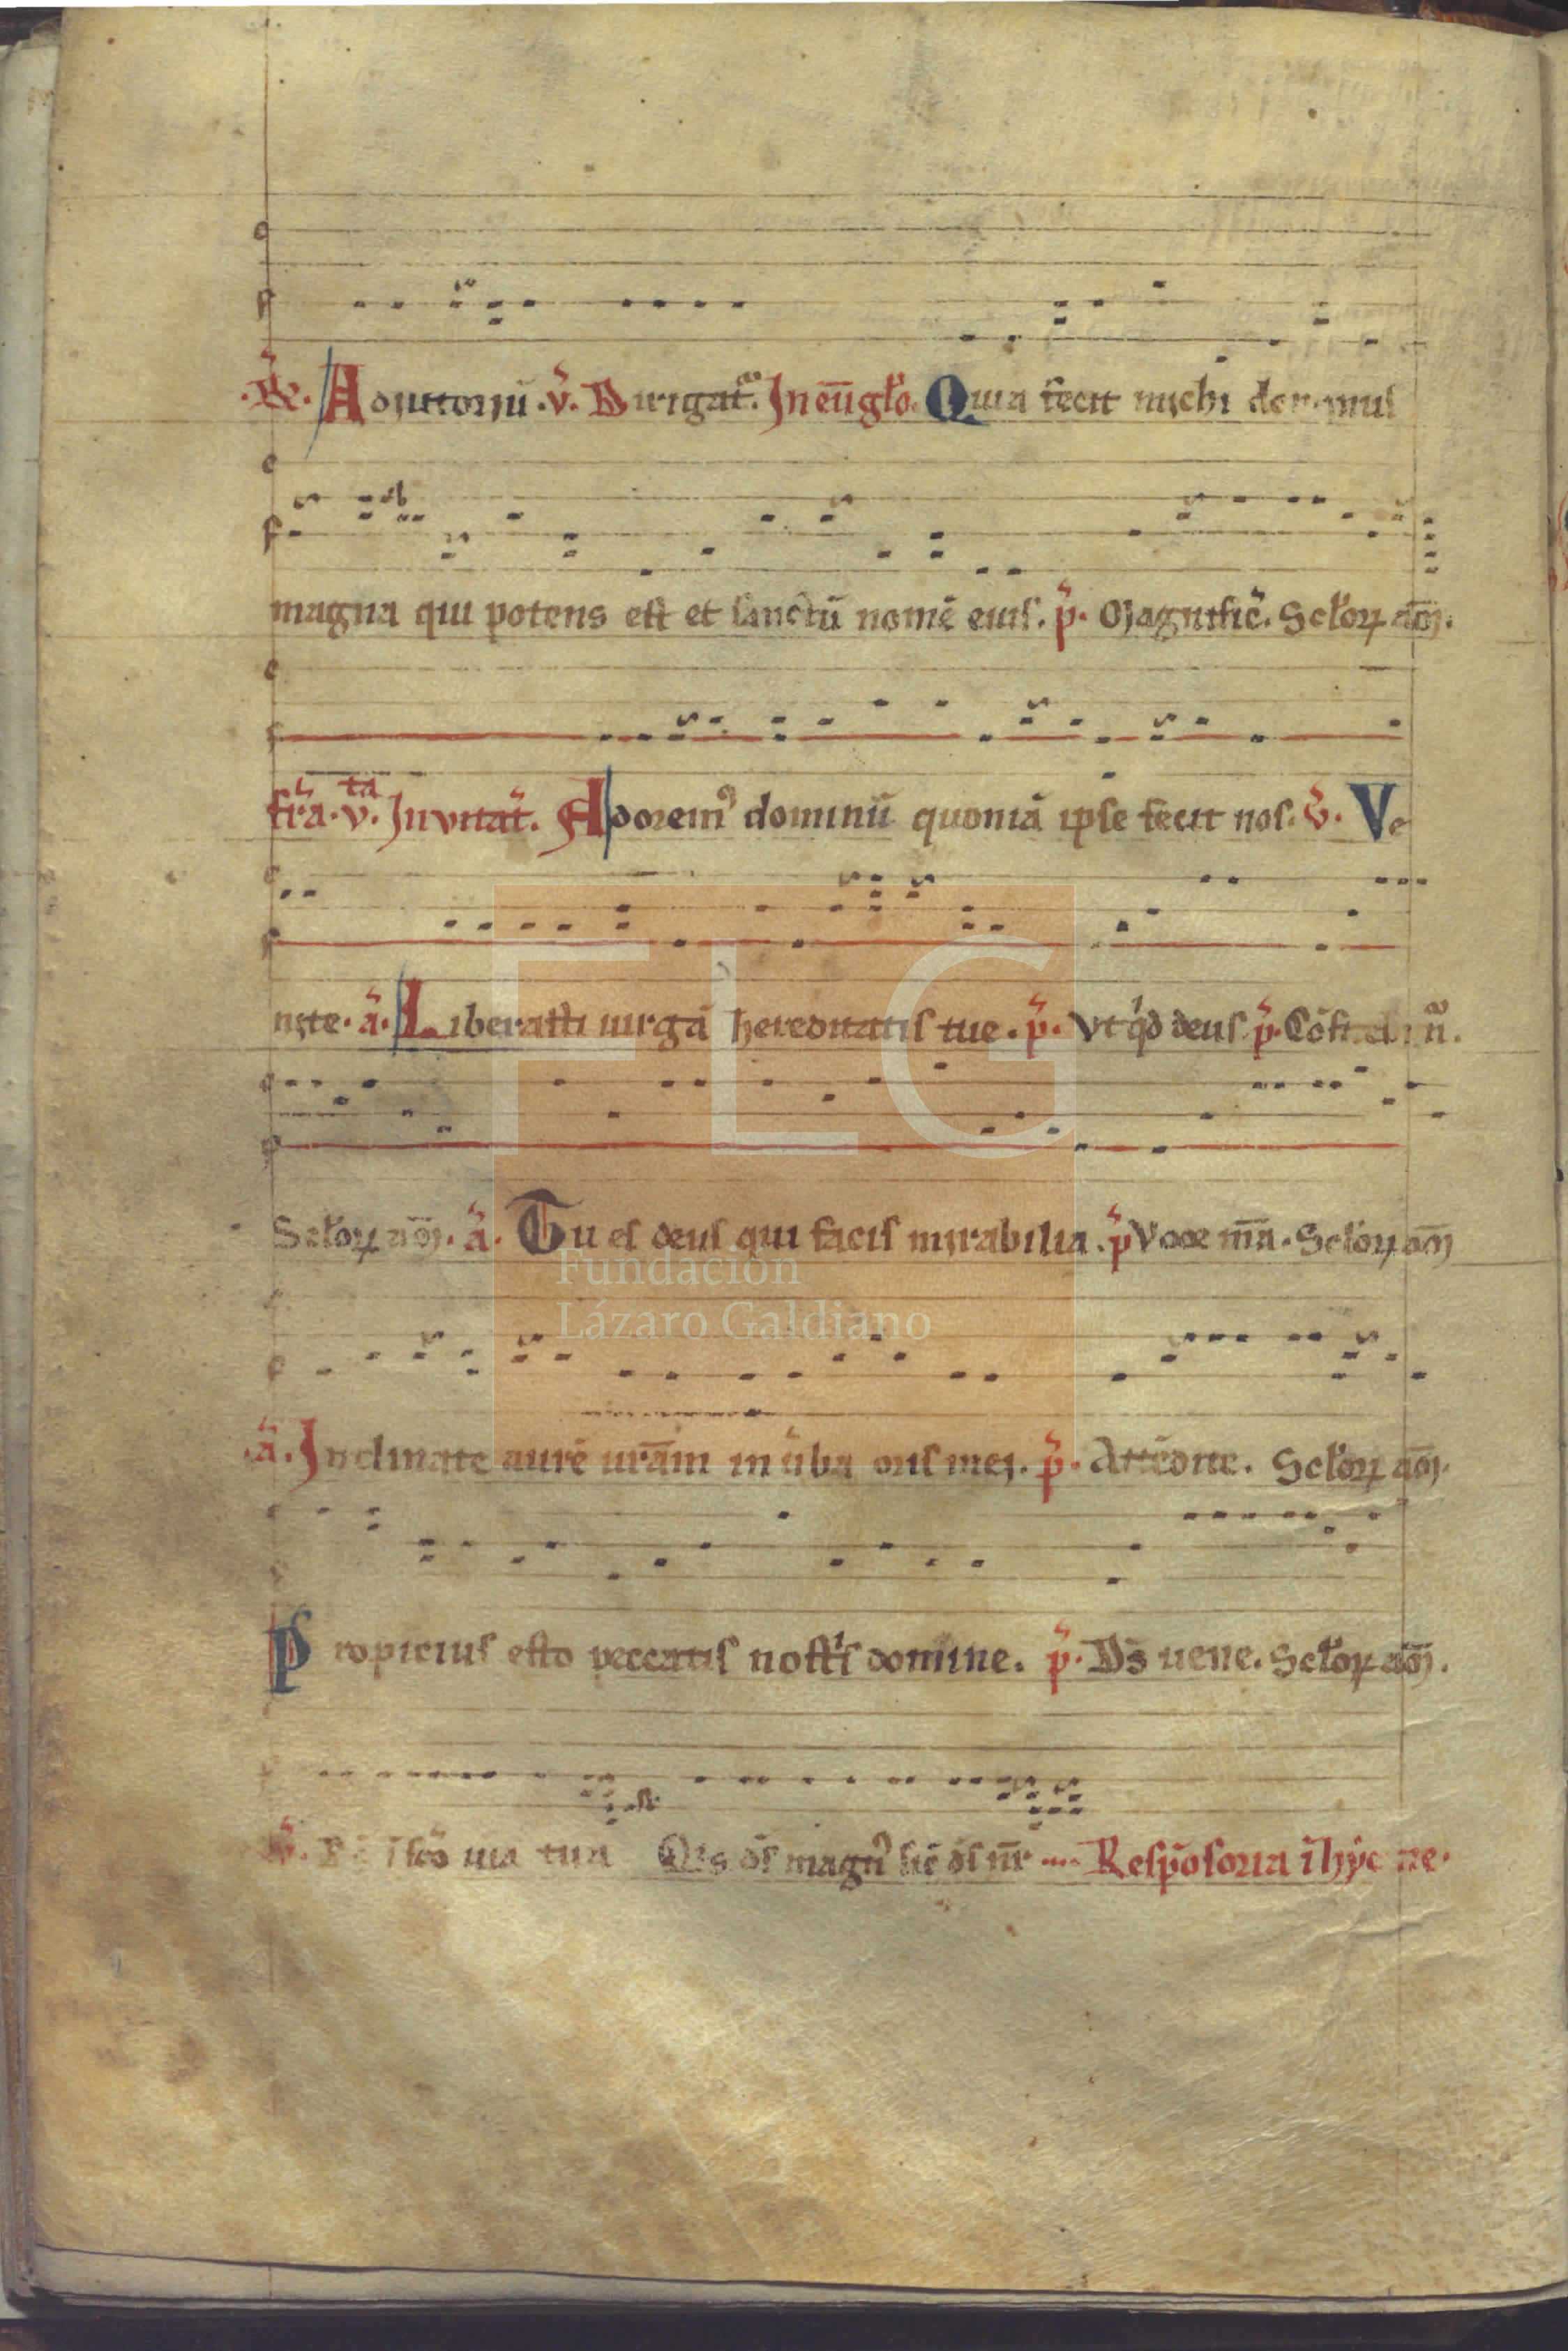 .R̃. Adiutoriũ .v̾. Dirigat̃. In eũgl̾o. Quia fecit michi dominus
magna qui potens est et sanctũ nomẽ eius. p̾. Magnific̃. Sclo̾ꝝ am̃.
fr̃a .v.ta Invitat̃. Adorem⁹ dominũ quoniã ipse fecit nos. v̾. Ve
nite. ã. Liberasti uirgã hereditatis tue. p̾. Vt qͥd deus. p̾. Cõfi
Sclo̾ꝝ am̃. ã. Tu es deus qui facis mirabilia. p̾ Voce m̃a. Sclo̾ꝝ am̃
ã. Inclinate aurẽ ur̃am in u̾ba oris mei. p̾. Attẽdite. Sclo̾ꝝ am̃.
Propicius esto peccatis nostͥs domine. p̾. Ds̃ uene. Sclo̾ꝝ am̃.
v̾. ĩ sc̃o uia tua Qis d̃s magn⁹ sic̃ d̃s nr̃ Resp̃osoria ĩ
FLG
Fundación
Lázaro Galdiano